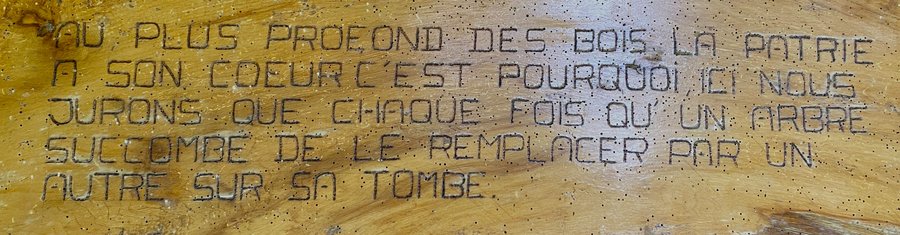 AU PLUS PROFOND DES BOIS LA PATRIE
A SON COEUR C'EST POURQUOI, ICI NOUS
JURONS QUE CHAQUE FOIS QU'UN ARBRE
SUCCOMBE DE LE REMPLACER PAR UN
AUTRE SUR SA TOMBE.